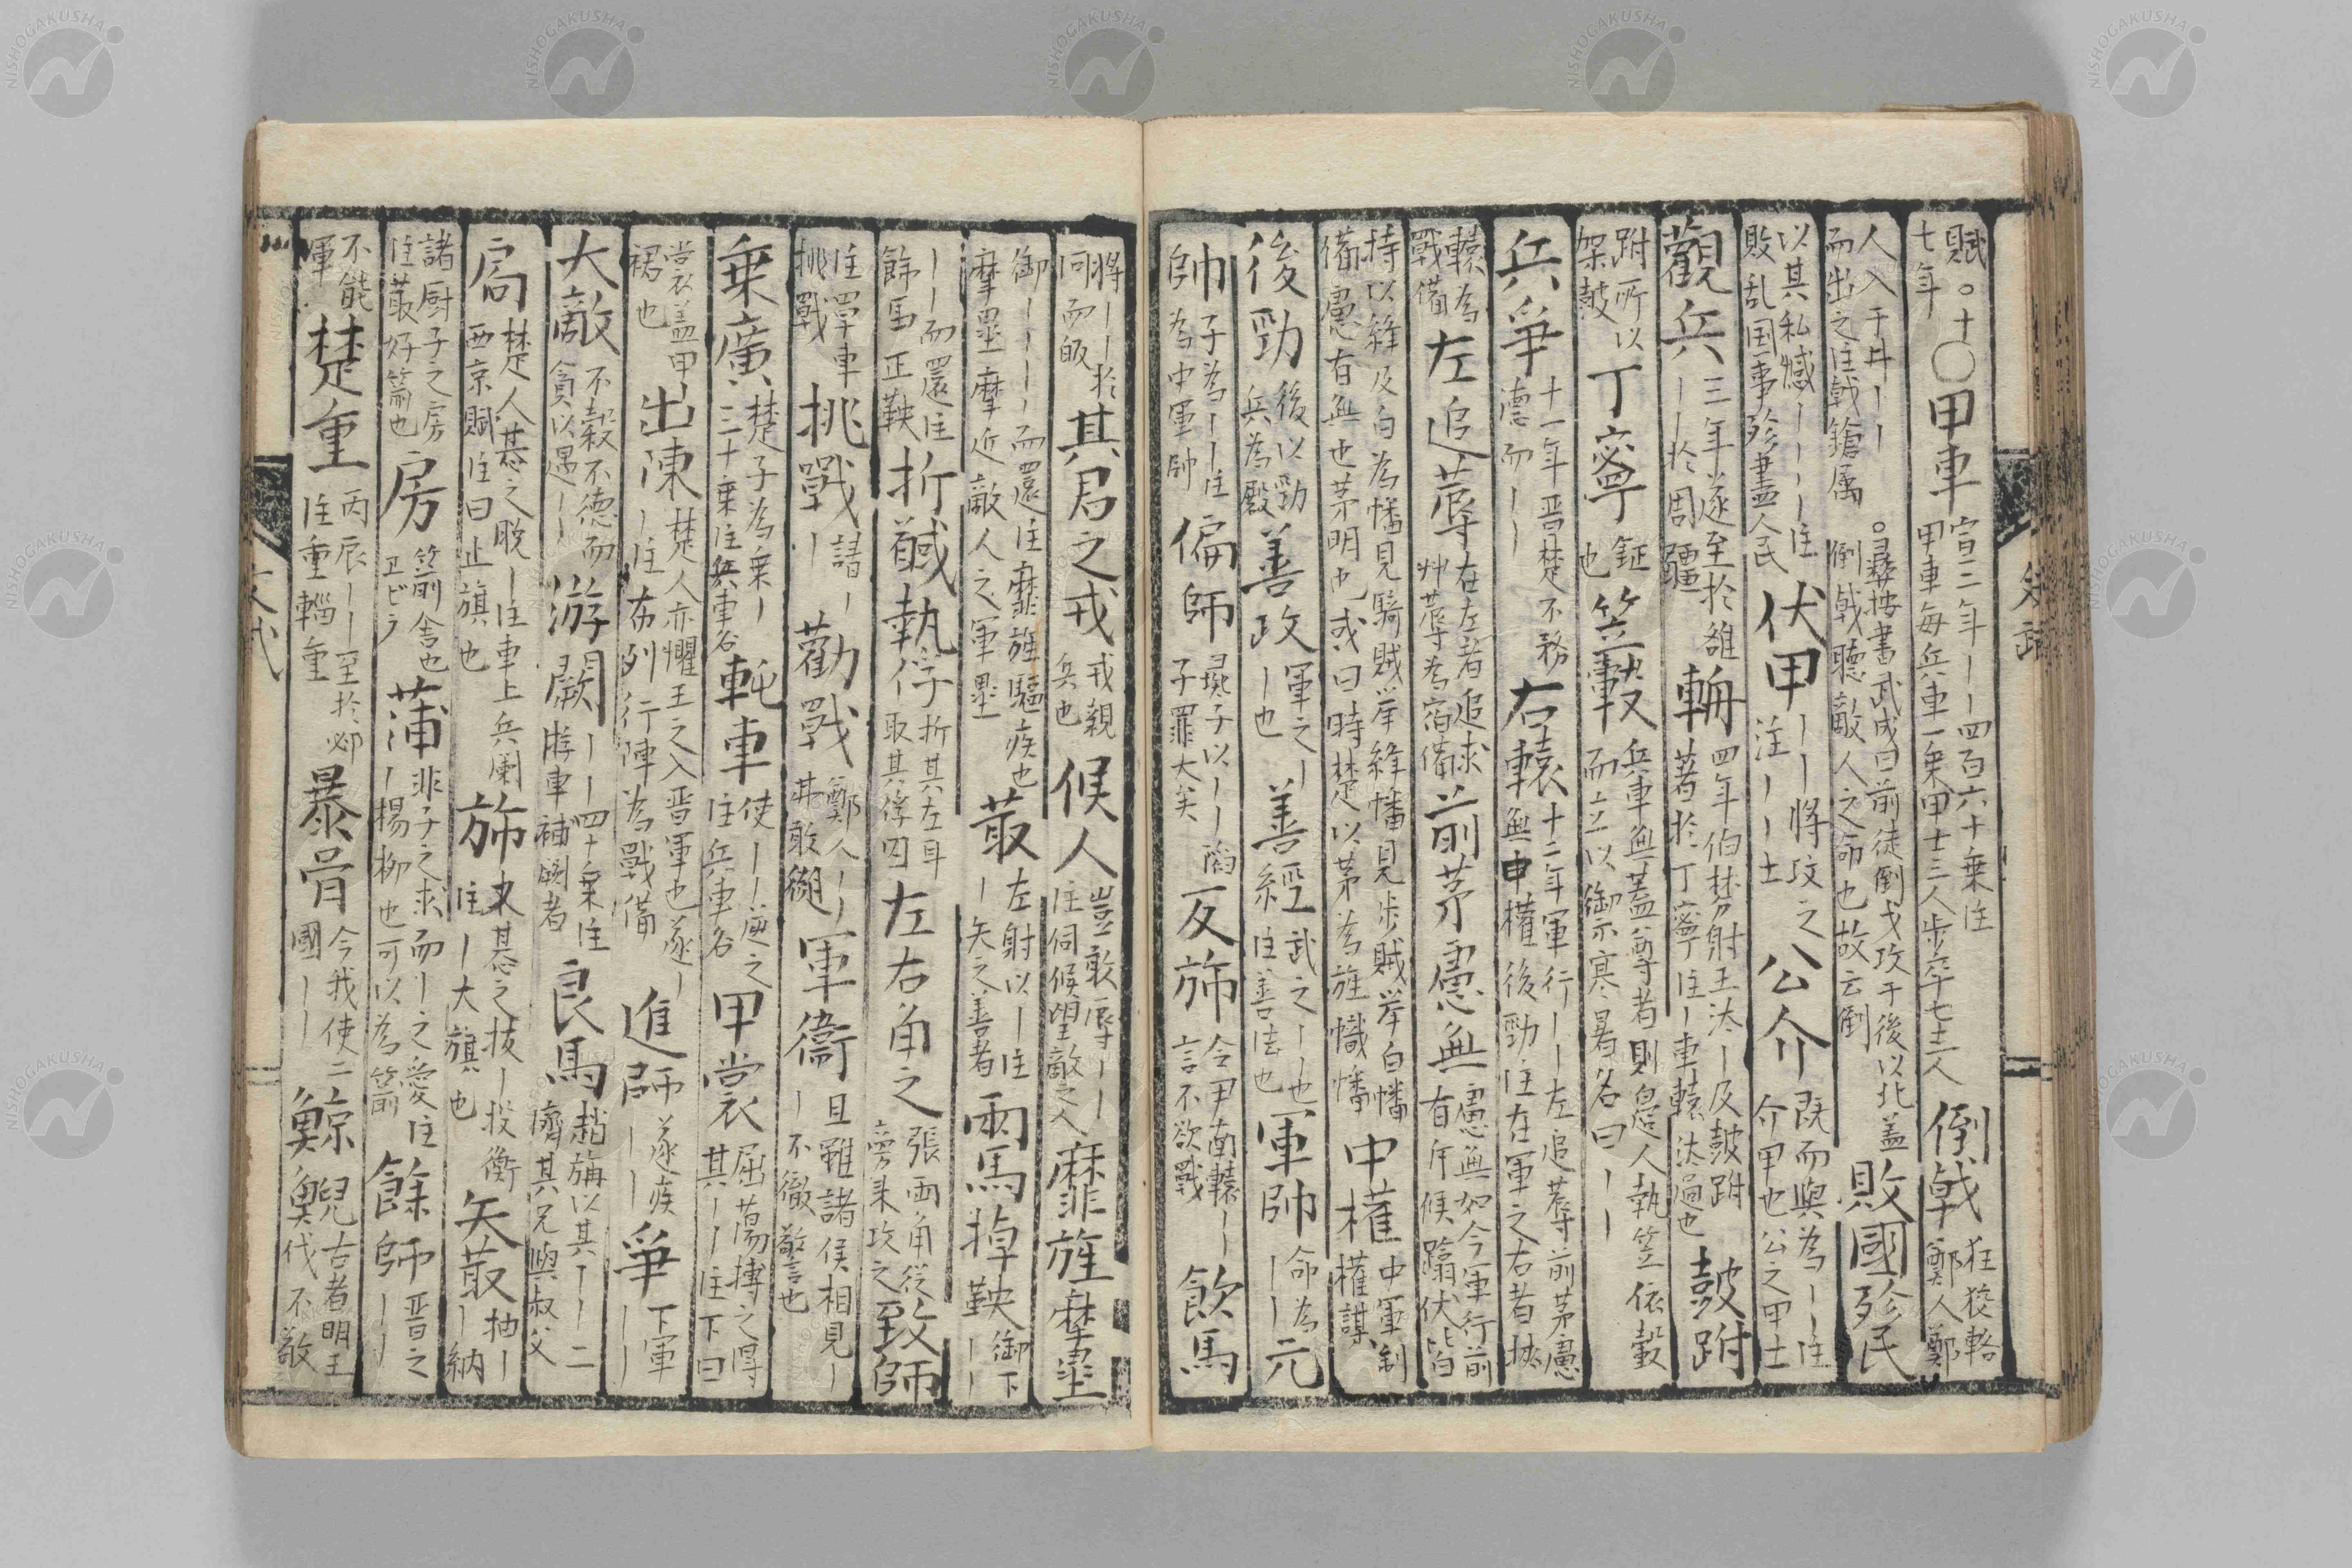 賦。十〇甲車宣二年〡〡四百六十乗注
七年甲車毎兵車一乗甲士三人歩卒七十二人倒戟狂狡輅鄭人鄭
人入于井〡〡而出之注戟鎗属。彛按書武成曰前徒倒戈攻于後以北盖倒戟聴敵人之命也故云倒敗國殄民
以其私憾〡〡〡〡注敗乱国事殄尽人民伏甲〡〡〡将攻之注〡〡士公介既而與為〡〡注介甲也公之甲士
觀兵三年遂至於雒〡〡於周疆輈四年伯棼射王汰〡及鼓跗著於丁寧注〡車轅汰過也鼓跗
跗所以架鼓丁寧鉦也笠轂兵車無蓋尊者則邉人執笠依轂而立以御示寒暑名曰〡〡
兵爭十一年晋楚不務徳而〡〡右轅十二年軍行〡〡左追蓐前茅慮無中權後勁注在軍之右者挟
轅為戰備左追蓐在左者追求艸蓐為宿備前茅慮無慮無如今軍行前有斥候蹹伏皆
持以絳及白為幡見騎賊挙絳幡見歩賊挙白幡備慮有無也茅明也或曰時楚以茅為旌幟幡中權中軍制權謀
後勁後以勁兵為殿善政軍之〡〡也善經武之〡也注善法也軍帥命為〡〡元
帥子為〡〡注為中軍帥偏師彘子以〡〡䧟子罪大矣反旆令尹南轅〡〡言不欲戰飲馬
将〡〡於同而皈其君之戎戎親兵也候人豈敢辱〡〡注伺候望敵之人靡旌摩壘
御〡〡〡〡而還注靡旌驅疾也摩壘摩近敵人之軍壘菆左射以〡注〡矢之善者兩馬掉鞅御下〡〡
〡〡而還注餙馬正鞅折馘執俘折其左耳取其俘囚左右角之張兩角従旁来攻之致師
注單車挑戰挑戰請〡〡勸戰鄭人〡〡其敢軍衞且雖諸侯相見〡〡不徹警也
乗廣楚子為乗〡三十乗注兵車名軘車使〡〡逆之注兵車名甲裳屈蕩搏之得其〡〡注下曰
裳衣蓋甲裙也出陳楚人亦懼王之入晋軍也遂〡〡注布列行陣為戰備進師遂疾〡〡爭下軍〡〡
大敵不穀不徳而貪以遇〡〡游闕〡〡四十乗注游車補闕者良馬趙旃以其〡〡二濟其兄與叔父
扃楚人惎之脱〡注車上兵闌西京賦注曰止旗也旆又惎之抜〡投衡注〡大旗也矢菆抽〡〡納
諸厨子之房注菆好箭也房箭舎也ヱビラ蒲非子之求而〡之愛注〡〡楊柳也可以為箭餘師晋之〡〡
不能軍楚重丙辰〡〡至於邲注重輜重暴骨今我使二國〡〡鯨鯢古者明王伐不敬